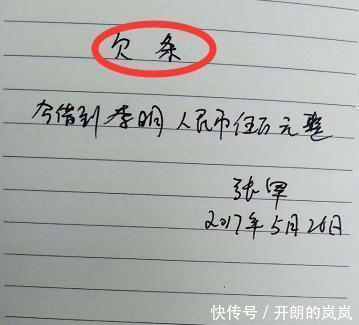 欠条
今借到李明人民币伍万元整
张军
2017年5月26日
快传号/开朗的岚岚